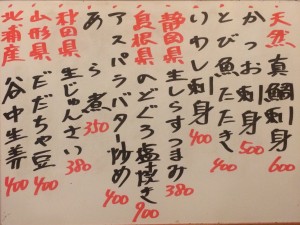 天然 真鯛刺身 600
かつお刺身 500
とび魚たたき 400
いわし刺身 400
静岡県 生しらすつまみ 380
島根県 のどぐろ塩焼き 900
アスパラバター炒め 400
あら煮 350
秋田県 生じゅんさい 380
山形県 だだちゃ豆 400
北浦産 谷中生姜 400